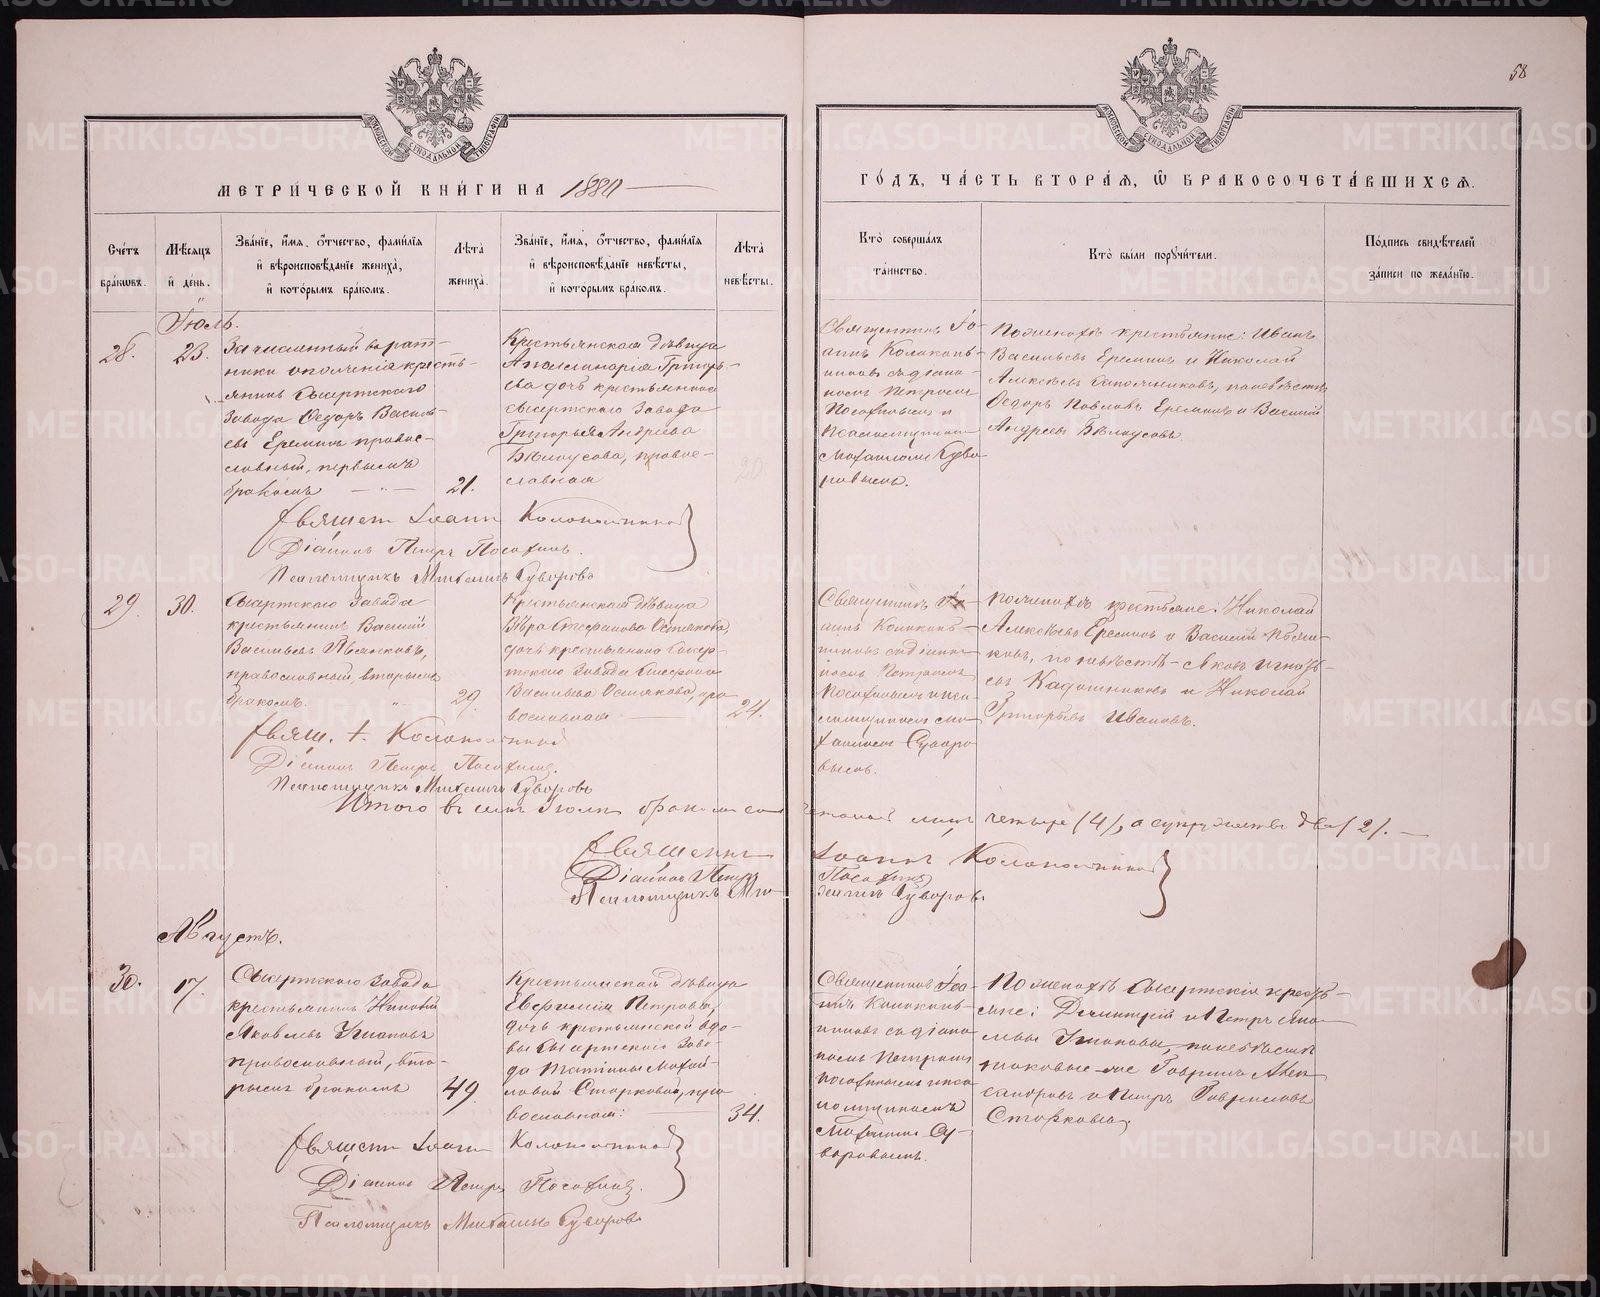 58
МЕТРИЧЕСКОЙ КНИГИ НА 188
ГОДЪ, ЧАСТЬ ВТОРАЯ, Ѡ БРАКОСОЧЕТАВШИХСЯ.
Счетъ браковъ.
Мѣсяцъ и день.
Званіе, имя, отчество, фамилія и вѣроисповѣданіе жениха, и которымъ бракомъ.
Лѣта жениха.
Званіе, имя, отчество, фамилія и вѣроисповѣданіе невѣсты, и которымъ бракомъ.
Лѣта невѣсты.
Кто совершалъ таинство.
Кто были поручители.
Подпись свидѣтелей записи по желанію.
Іюль.
28.
23.
Зачисленный въ рат-
ники ополченія кресть-
янинъ Сысертскаго
Завода Ѳедоръ Василь-
евъ Ереминъ правос-
лавный, первымъ
бракомъ
21.
Крестьянская дѣвица
Аполлинарія Григорь-
ева дочь крестьянина
Сысертскаго Завода
Григорья Андреева
Бѣлоусова, правос-
лавная
20.
Священникъ Іо-
аннъ Колоколь-
никовъ съ діако-
номъ Петромъ
и
Псаломщикомъ
Михаиломъ Суво-
ровымъ.
По женихѣ крестьяне: Иванъ
Васильевъ Ереминъ и Николай
Алексѣевъ по невѣстѣ
Ѳедоръ Павловъ Ереминъ и Василій
Андреевъ Бѣлоусовъ.
Священ Іоаннъ Колокольников
Діаконъ Петръ
Псаломщикъ Михаилъ Суворовъ
29.
30.
Сысертскаго Завода
крестьянинъ Василій
Васильевъ
православный, вторымъ
бракомъ.
29.
Крестьянская дѣвица
Вѣра Стефанова
дочь крестьянина Сысер-
тскаго Завода Стефана
Васильева пра-
вославная
24.
Священникъ Іо-
аннъ Коло­коль-
никовъ съ діако-
номъ Петромъ
и пса-
ломщикомъ Ми-
хаиломъ Суворо-
вымъ.
По женихѣ крестьяне: Николай
Алексѣевъ Ереминъ и Василій
по невѣстѣ - Яковъ
Кадошниковъ и Николай
Григорьевъ Ивановъ.
Свящ. І. Колокольников
Діаконъ Петръ
Псаломщикъ Михаилъ Суворовъ
Итого въ м-цѣ Іюлѣ бракомъ соче­таной лицъ четыре (4), а супружествъ два (2).
Священникъ Іоаннъ Колокольников
Діаконъ Петръ
Псаломщикъ Михаилъ Суворовъ
Августъ.
30.
17.
Сысертскаго Завода
крестьянинъ
Яковлевъ
православный, вто-
рымъ бракомъ
49.
Крестьянская дѣвица
Евфимія Петрова,
дочь крестьянской вдо-
вы Сысертскаго Заво-
да Татіаны Михай-
ловой Старковой, пра-
вославная.
34.
Священникъ Іоа-
ннъ Коло­коль-
никовъ съ діако-
номъ Петромъ
и пса-
ломщикомъ
Михаиломъ Су-
воровымъ.
По женихѣ Сысертскіе кресть-
яне: Димитрій и Петръ Яко-
влевы по невѣстѣ
таковые-же Гавріилъ Алек-
сандровъ и Петръ Гавриловъ
Старковы.
Священ Іоаннъ Колокольников
Діаконъ Петръ
Псаломщикъ Михаилъ Суворовъ
METRIKI.GASO-URAL.RU